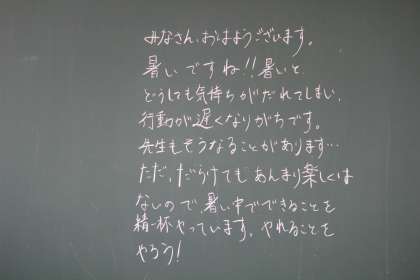 みなさん、おはようございます。
暑いですね!!暑いと
どうしても気持ちがだれてしまい、
行動が遅くなりがちです。
先生もそうなることがあります…
ただ、だらけてもあんまり楽しくは
ないので、暑い中でできることを
精一杯やっています。やれることを
やろう!